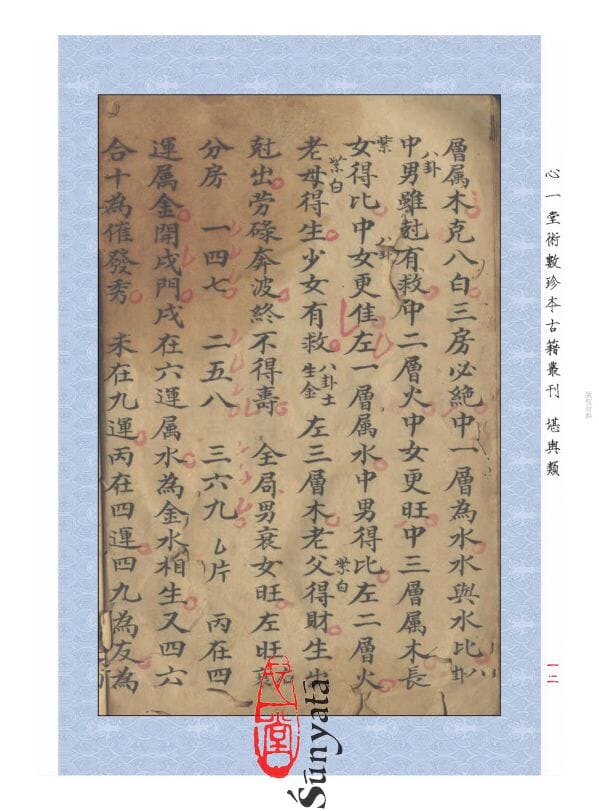 層属木克八白三房必絶中一層為水水與水比八卦
中男雖尅有救八卦中二層火中女更旺中三層属木長
女得比紫中女更佳八卦左一層属水中男得比左二層火
老母得生紫白少女有救八卦土生金左三層木老父得財紫白生
尅出劳碌奔波終不得壽 全局男衰女旺左旺
分房 一四七 二五八 三六九 片 丙在四
運属金開戌門戌在六運属水為金水相生又四六
合十為催發秀 未在九運丙在四運四九為友為
心一堂術數珍本古籍叢刊 堪輿類
一二
版权材料
心一堂
Śūnyatā